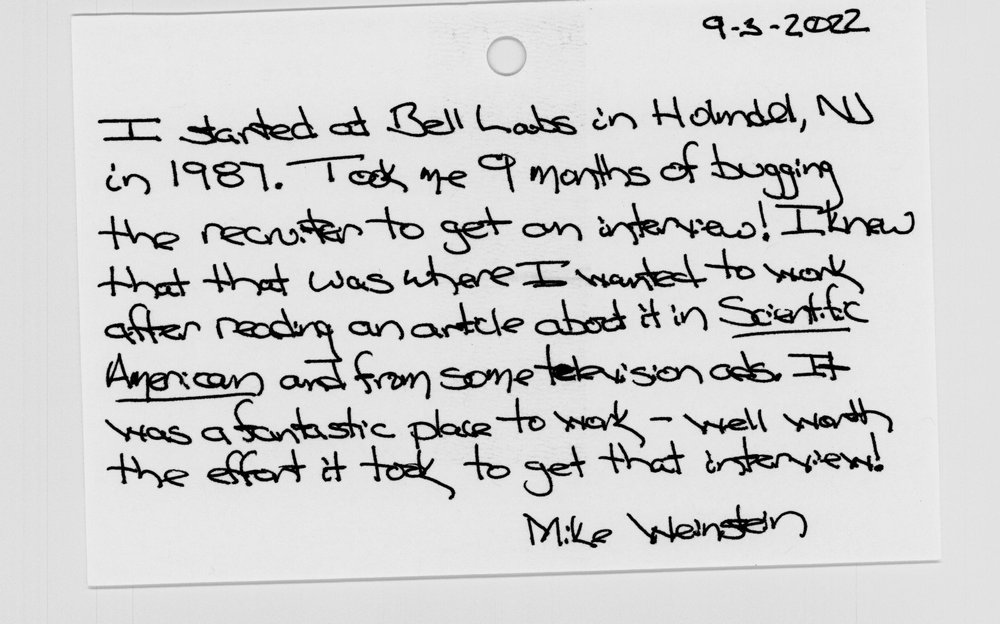 9-3-2022
I started at Bell Labs in Holmdel, NJ
in 1987. Took me 9 months of bugging
the recruiter to get an interview! I knew
that that was where I wanted to work
after reading an article about it in Scientific
American and from some television ads. It
was a fantastic place to work – well worth
the effort it took to get that interview!
Mike Weinstein